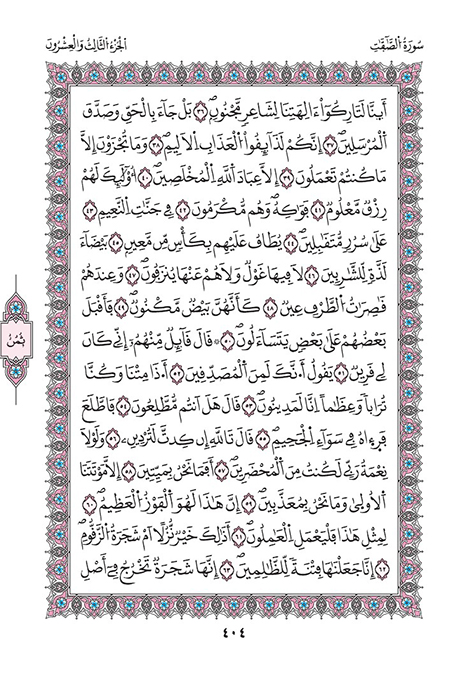 سُورَةُ الصَّٰٓفَّٰتِ
الجُزْءُ الثَّالِثُ وَالْعِشْرُونَ
أَينَّا لَتَارِكُوٓاْ ءَالِهَتِنَا لِشَاعِرٍ مَّجْنُونٍۖ ٣٦ بَلْ جَآءَ بِالْحَقِّ وَصَدَّقَ
اَلْمُرْسَلِينَۖ ٣٧ إِنَّكُمْ لَذَآئِقُواْ الْعَذَابِ الْأَلِيمِۖ ٣٨ وَمَا تُجْزَوْنَ إِلَّا
مَا كُنتُمْ تَعْمَلُونَ ٣٩ إِلَّا عِبَادَ اَللَّهِ الْمُخْلَصِينَۖ ٤٠ أُوْلَٰٓئِكَ لَهُمْ
رِزْقٌ مَّعْلُومٌ ٤١ فَوَٰكِهُۖ وَهُم مُّكْرَمُونَ ٤٢ فِي جَنَّٰتِ النَّعِيمِ ٤٣
عَلَىٰ سُرُرٍ مُّتَقَٰبِلِينَۖ ٤٤ يُطَافُ عَلَيْهِم بِكَأْسٍ مِّن مَّعِينٍۢ ٤٥ بَيْضَآءَ
لَذَّةٍ لِّلشَّٰرِبِينَ ٤٦ لَا فِيهَا غَوْلٌ وَلَا هُمْ عَنْهَا يُنزَفُونَۖ ٤٧ وَعِندَهُمْ
قَٰصِرَٰتُ الطَّرْفِ عِينٌ ٤٨ كَأَنَّهُنَّ بَيْضٌ مَّكْنُونٌۖ ٤٩ فَأَقْبَلَ
بَعْضُهُمْ عَلَىٰ بَعْضٍ يَتَسَآءَلُونَۖ ٥٠ قَالَ قَآئِلٌ مِّنْهُمُۥٓ إِنِّي كَانَ
لِي قَرِينٌ ٥١ يَقُولُ أَنَّكَ لَمِنَ الْمُصَدِّقِينَ ٥٢ أَٰذَا مِتْنَا وَكُنَّا
تُرَاباً وَعِظَٰماً اِنَّا لَمَدِينُونَۖ ٥٣ قَالَ هَلَ اَنتُم مُّطَّلِعُونَۖ ٥٤ فَاطَّلَعَ
فَرَءِاهُ فِي سَوَآءِ الْجَحِيمِۖ ٥٥ قَالَ تَاللَّهِ إِن كِدتَّ لَتُرْدِينِۦ ٥٦ وَلَوْلَا
نِعْمَةُ رَبِّي لَكُنتُ مِنَ الْمُحْضَرِينَۖ ٥٧ أَفَمَا نَحْنُ بِمَيِّتِينَ ٥٨ إِلَّا مَوْتَتَنَا
اَلُاولَىٰ وَمَا نَحْنُ بِمُعَذَّبِينَۖ ٥٩ إِنَّ هَٰذَا لَهُوَ الْفَوْزُ الْعَظِيمُۖ ٦٠
لِمِثْلِ هَٰذَا فَلْيَعْمَلِ الْعَٰمِلُونَۖ ٦١ أَذَٰلِكَ خَيْرٌ نُّزُلاً اَمْ شَجَرَةُ الزَّقُّومِۖ
٦٢ إِنَّا جَعَلْنَٰهَا فِتْنَةً لِّلظَّٰلِمِينَۖ ٦٣ إِنَّهَا شَجَرَةٌ تَخْرُجُ فِي أَصْلِ
ثُمُنُ
٤٠٤